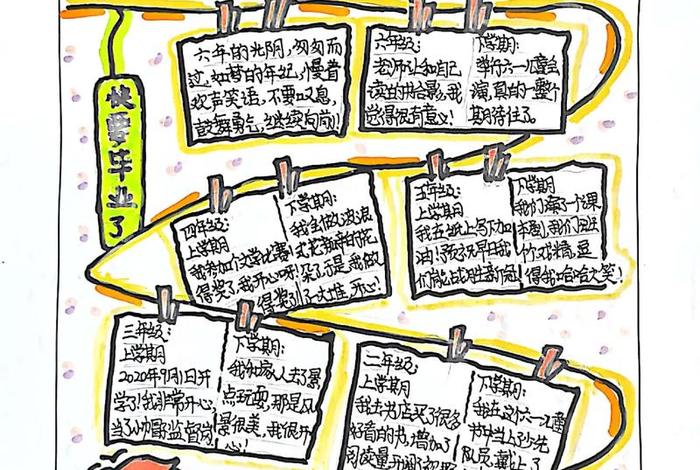 快要毕业了
六年的光阴，匆匆而
过，如昔的年纪，慢着
欢声笑语，不要叹息，
鼓舞勇气，继续向前！
六年级：
老师让和自己
读的书合影，我
觉得很有意义！
下学期：
举行六一儿童会
演，真的一整个
期待住了。
四年级：
上学期
我参加个文学比赛
得奖了我开心呀！
下学期：
我会做
得奖了
了一大堆，开心！
五年级：
上学期
我在纸上写下加
油！
们能战胜新冠
下学期：
我们演了一个课
本剧，我们班
得我哈哈大笑！
三年级：
上学期
2020年9月1日开
学了！我非常开心，
当了小叮当监督岗
下学期：
我和家人去了景
点玩耍，那是风
景很美，我很开
心！
二年级：
上学期
我去书店买了很多
好看的书，增加了
阅读量，开阔
下学期：
我在这个六一儿童
节中当上少先
队员，戴上了